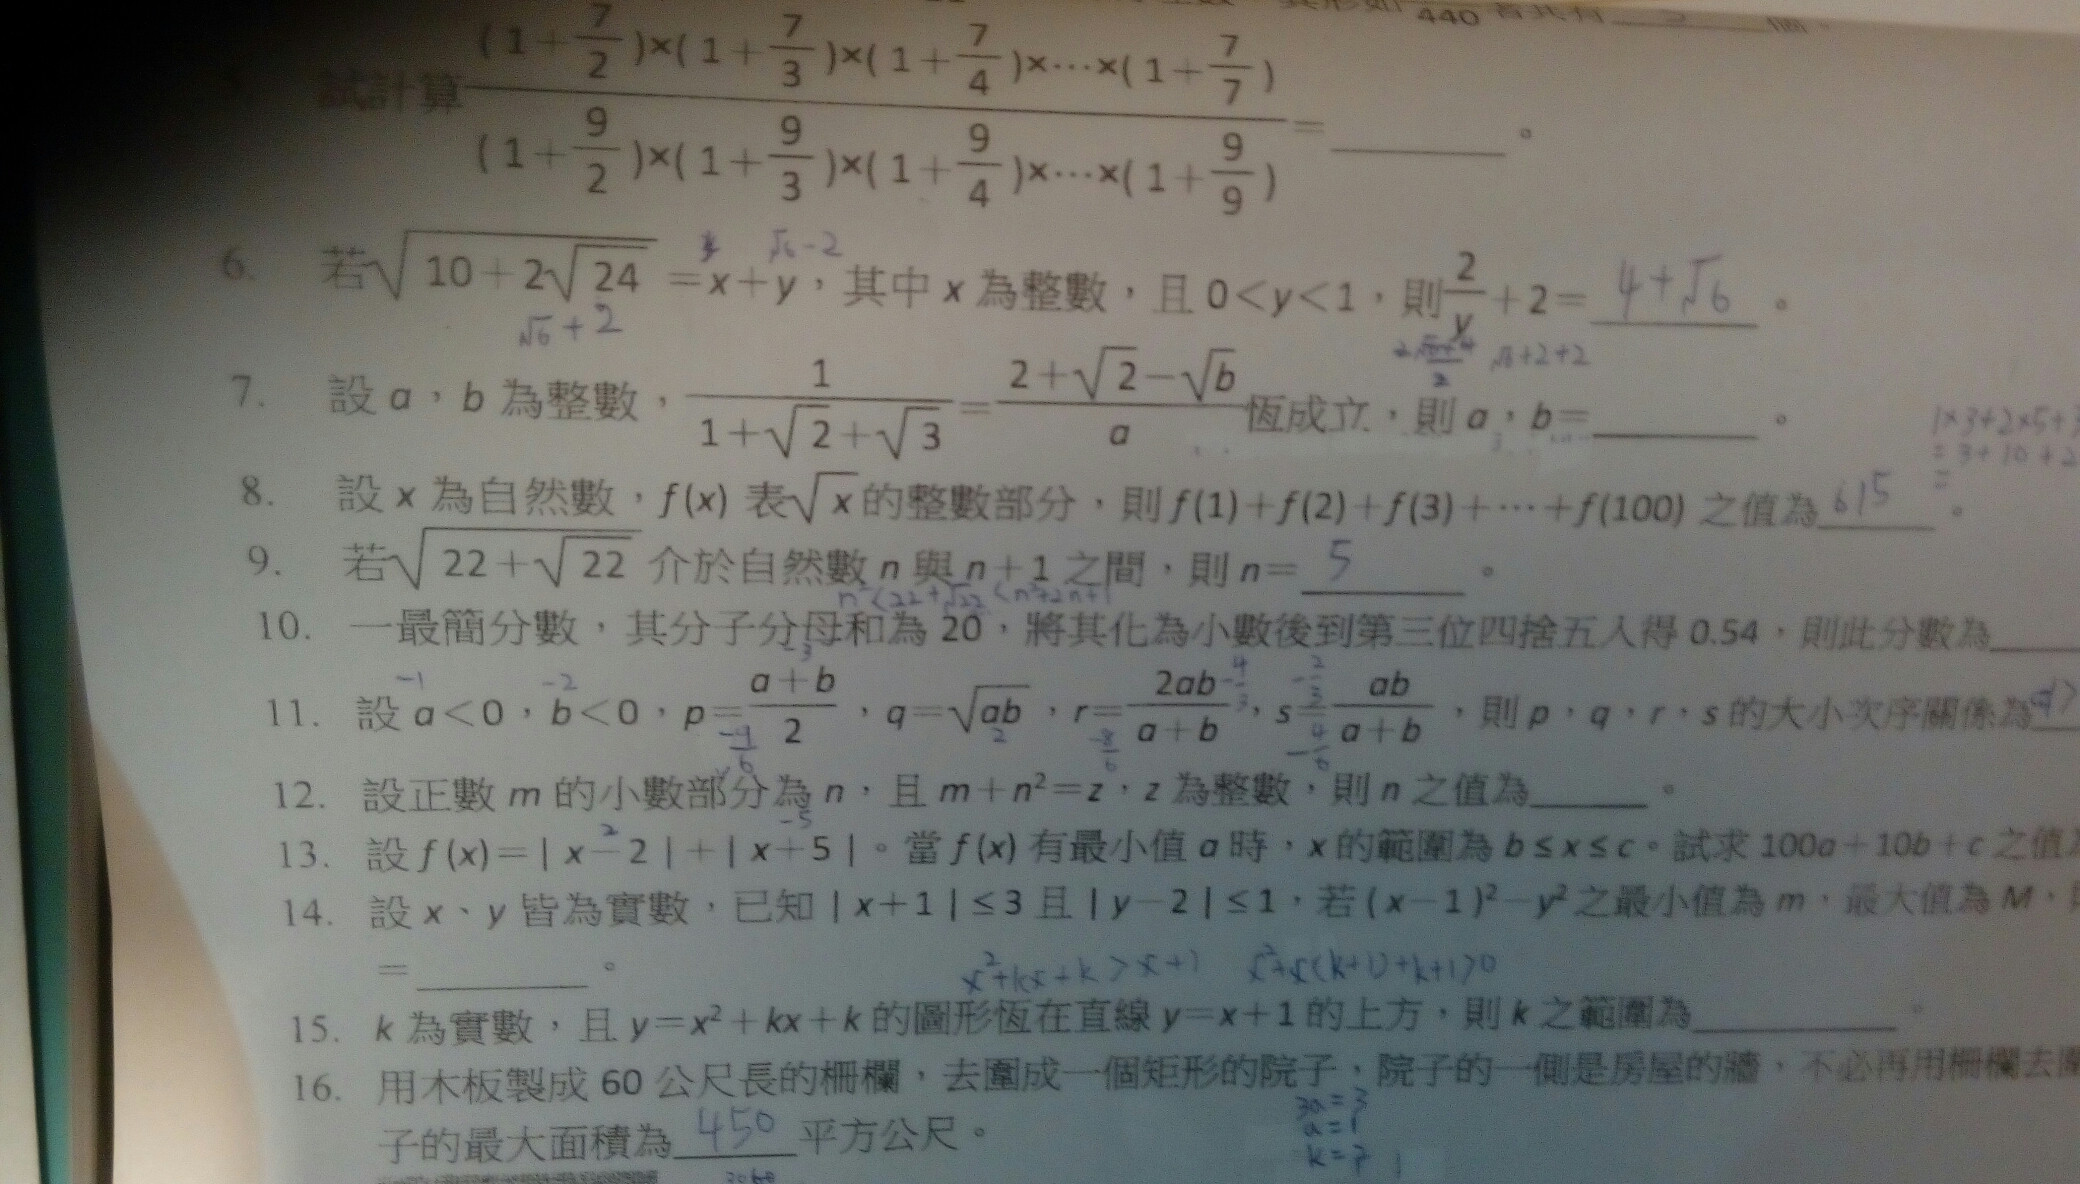 440
試計算 (1+7/2)×(1+7/3)×(1+7/4)×⋯×(1+7/7) / (1+9/2)×(1+9/3)×(1+9/4)×⋯×(1+9/9) =______。
√6-2
6. 若√(10+2√24) =x+y,其中 x 為整數,且 0<y<1,則 2/y +2= 4+√6 。
√6+2
√6+2+2
7. 設 a,b 為整數, 1/(1+√2+√3) = (2+√2-√b)/a 恆成立,則 a,b=______。
1×3+2×5+3
=3+10+2
=
8. 設 x 為自然數,f(x) 表√x 的整數部分,則 f(1)+f(2)+f(3)+⋯+f(100) 之值為 615 。
9. 若√(22+√22) 介於自然數 n 與 n+1 之間,則 n= 5 。
n²<22+√22<n²+2n+1
10. 一最簡分數,其分子分母和為 20,將其化為小數後到第三位四捨五入得 0.54,則此分數為
-1 -2 -3
11. 設 a<0,b<0,p= (a+b)/2 ,q=√ab ,r= 2ab/(a+b) ,s= ab/(a+b) ,則 p,q,r,s 的大小次序關係為
12. 設正數 m 的小數部分為 n,且 m+n²=z,z 為整數,則 n 之值為______。
2 -5
13. 設 f(x)=|x-2|+|x+5|。當 f(x) 有最小值 a 時,x 的範圍為 b≤x≤c。試求 100a+10b+c 之值
14. 設 x、y 皆為實數,已知 |x+1|≤3 且 |y-2|≤1,若 (x-1)²-y² 之最小值為 m,最大值為 M,
=______。
x²+kx+k>x+1 x²+x(k+1)+k+1>0
15. k 為實數,且 y=x²+kx+k 的圖形恆在直線 y=x+1 的上方,則 k 之範圍為______。
16. 用木板製成 60 公尺長的柵欄,去圍成一個矩形的院子,院子的一側是房屋的牆,不必再用柵欄去
3a=3
a=1
k=7
子的最大面積為 450 平方公尺。